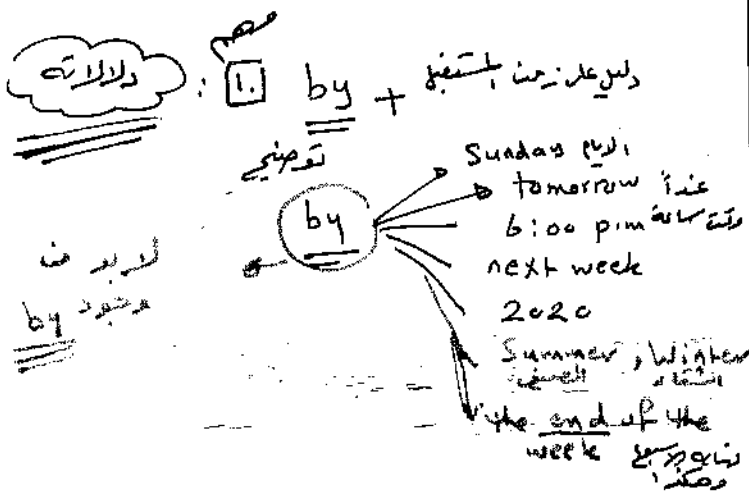 مهم
دلالاته : 1. by + دليل على زمن المستقبل
توضيح
by
Sunday الايام
tomorrow غداً
6:00 p.m وقت ساعة
next week
2020
Summer , Winter
الصيف الشتاء
the end of the week
نهاية الاسبوع
وهكذا
لا بد من
وجود by